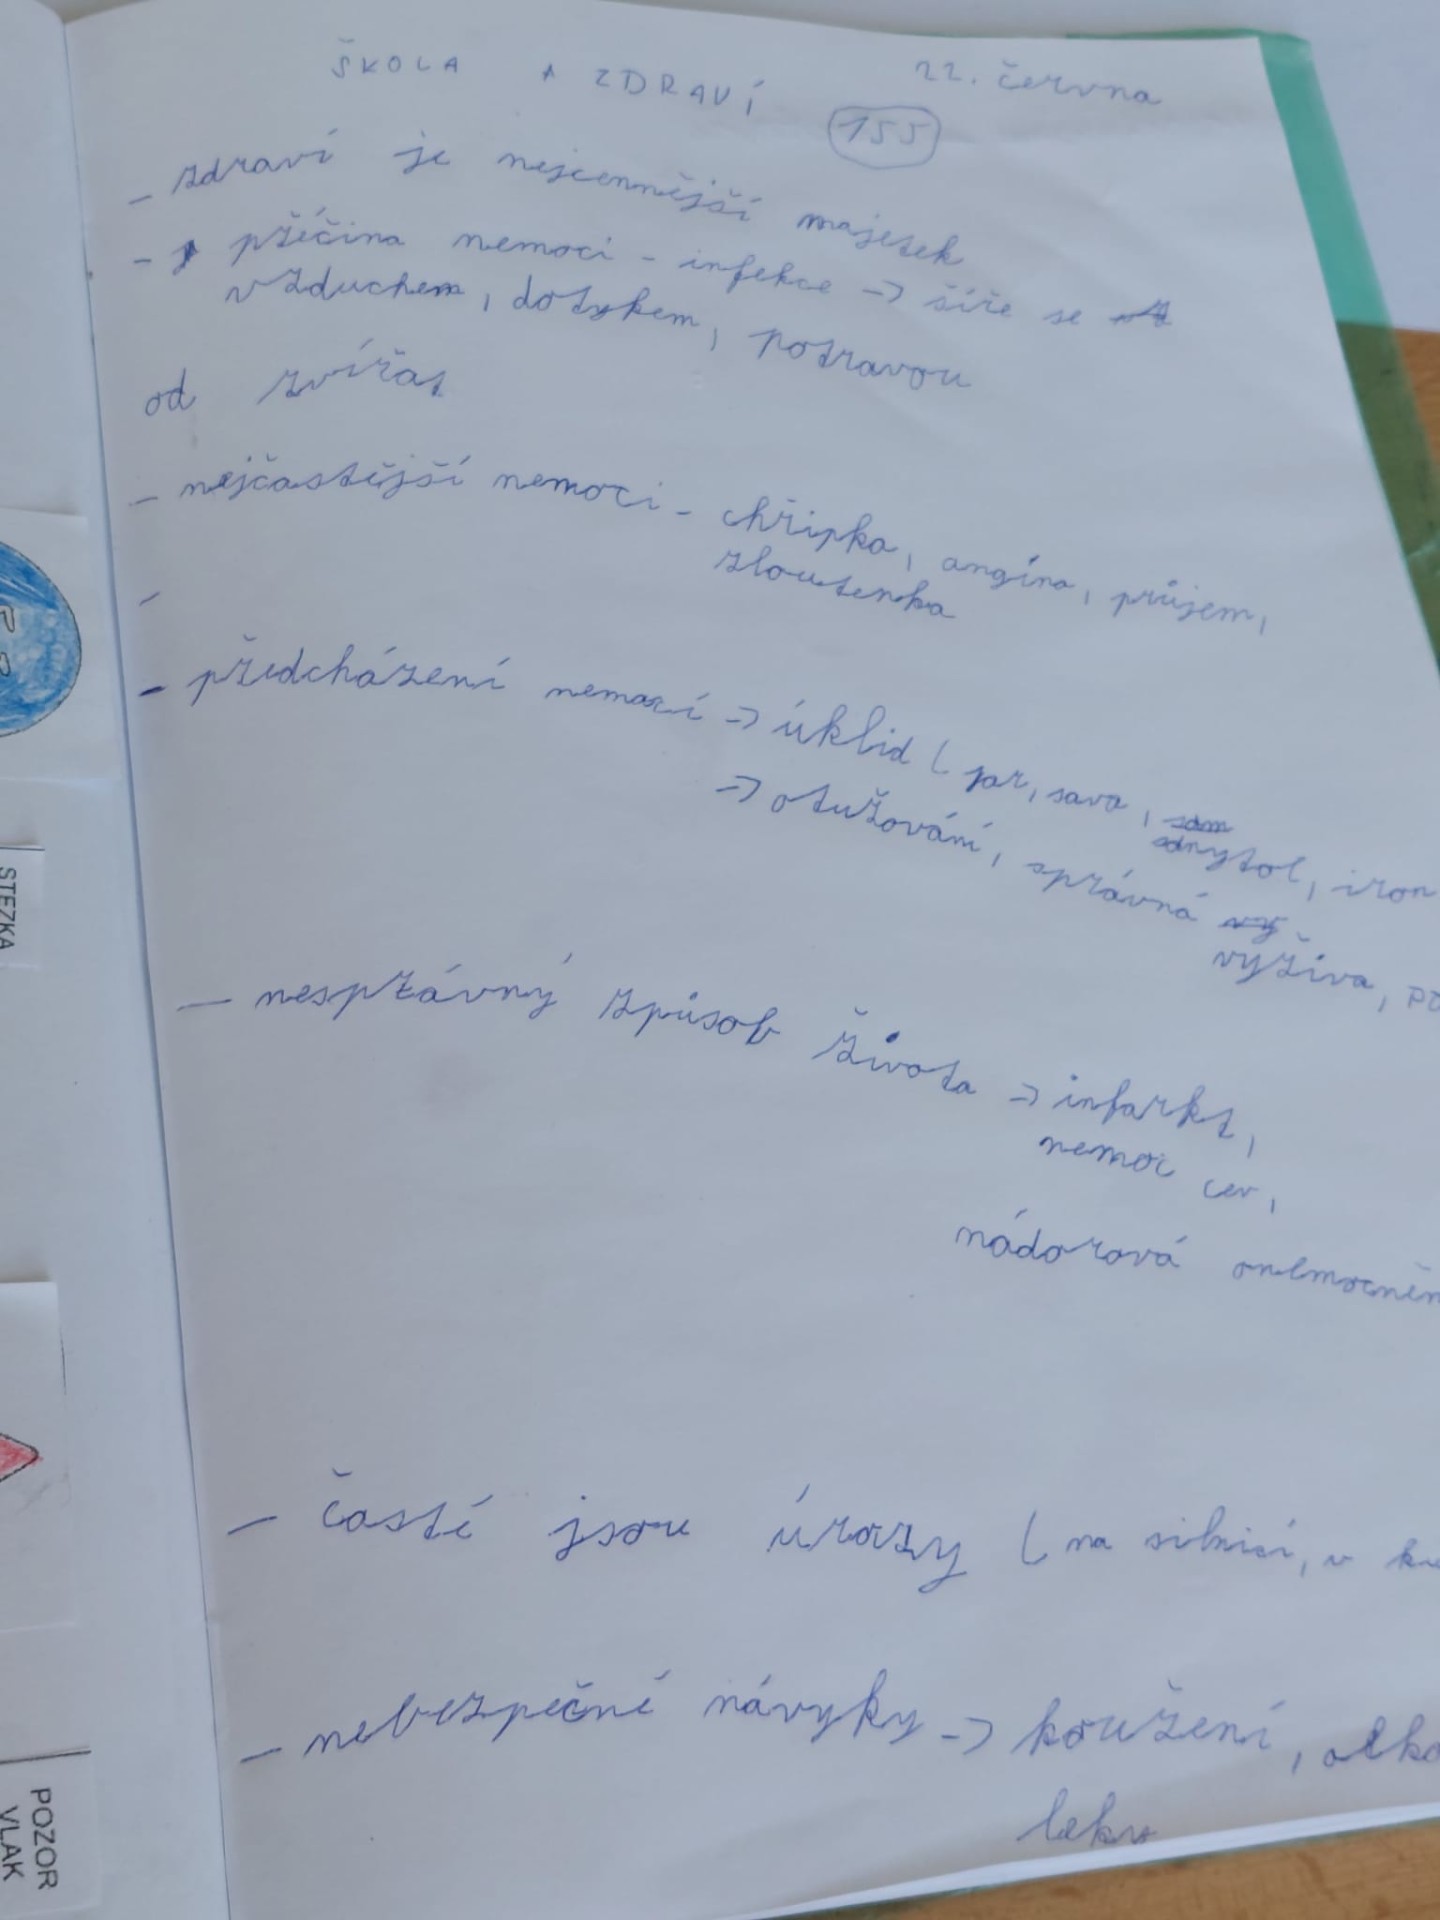 ŠKOLA A ZDRAVÍ 22. června
155
- zdraví je nejcennější majetek
- příčina nemoci - infekce -> šíře se
vzduchem, dotykem, potravou
od zvířat
- nejčastější nemoci - chřipka, angína, průjem,
žloutenka
-
- předcházení nemocí -> úklid ( jar, savo,
sanytol, iron
-> otužování, správná
výživa, po
- nesprávný způsob života -> infarkt,
nemoc cev,
nádorová onemocněn
- časté jsou úrazy ( na silnici, v ku
- nebezpečné návyky -> kouření, alko
léky
STEZKA
POZOR
VLAK